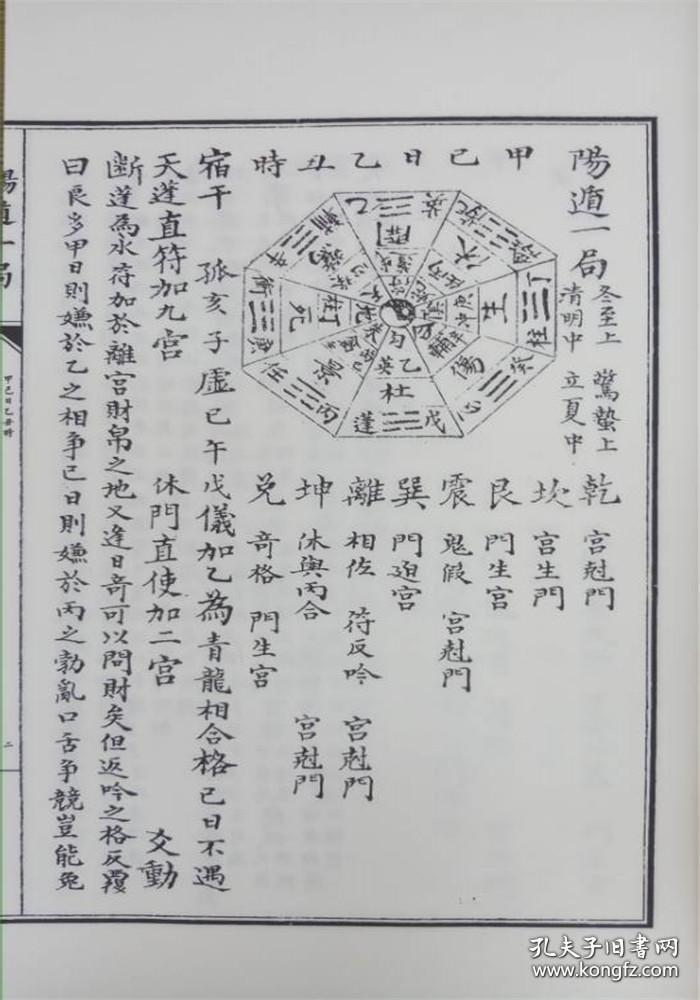 陽遁一局
冬至上 驚蟄上
清明中 立夏中
甲己日乙丑時
乾 宮尅門
坎 宮生門
艮 門生宮
震 鬼假 宮尅門
巽 門迫宮
離 相佐 符反吟 宮尅門
坤 休與丙合 宮尅門
兌 奇格 門生宮
宿干 孤亥子虛巳午戊儀加乙為青龍相合格己日不遇
天蓬直符加九宮 休門直使加二宮 爻動
斷蓬為水符加於離宮財帛之地又逢日奇可以問財矣但返吟之格反覆
曰良多甲日則嫌於乙之相爭己日則嫌於丙之勃亂口舌爭競豈能免
乙 英
開
休
生
丁 柱
傷
癸 心
杜
戊 蓬
景
丙 任
死
庚 衝
乙 英
陽遁一局
甲己日乙丑時
二
孔夫子旧书网
www.kongfz.com